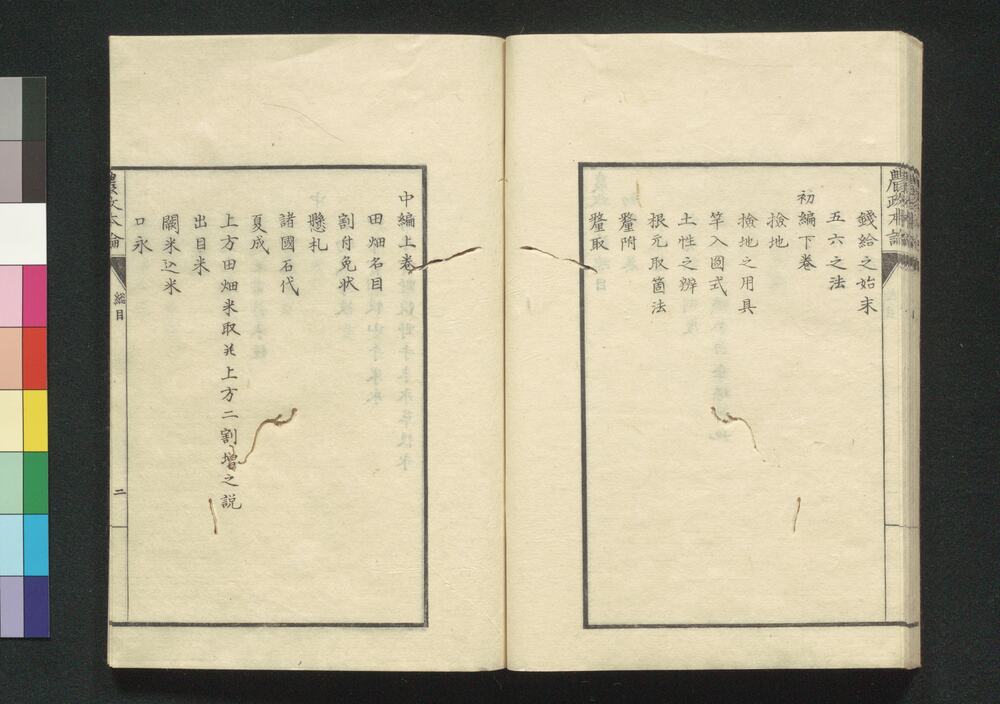 農政本論
錢給之始末
五六之法
初編下卷
撿地
撿地之用具
竿入圖式
土性之辨
根元取箇法
釐附
釐取
中編上卷
田畑名目
割付免狀
懸札
諸國石代
夏成
上方田畑米取幷上方二割增之説
出目米
闕米込米
口永
農政本論
総目
二